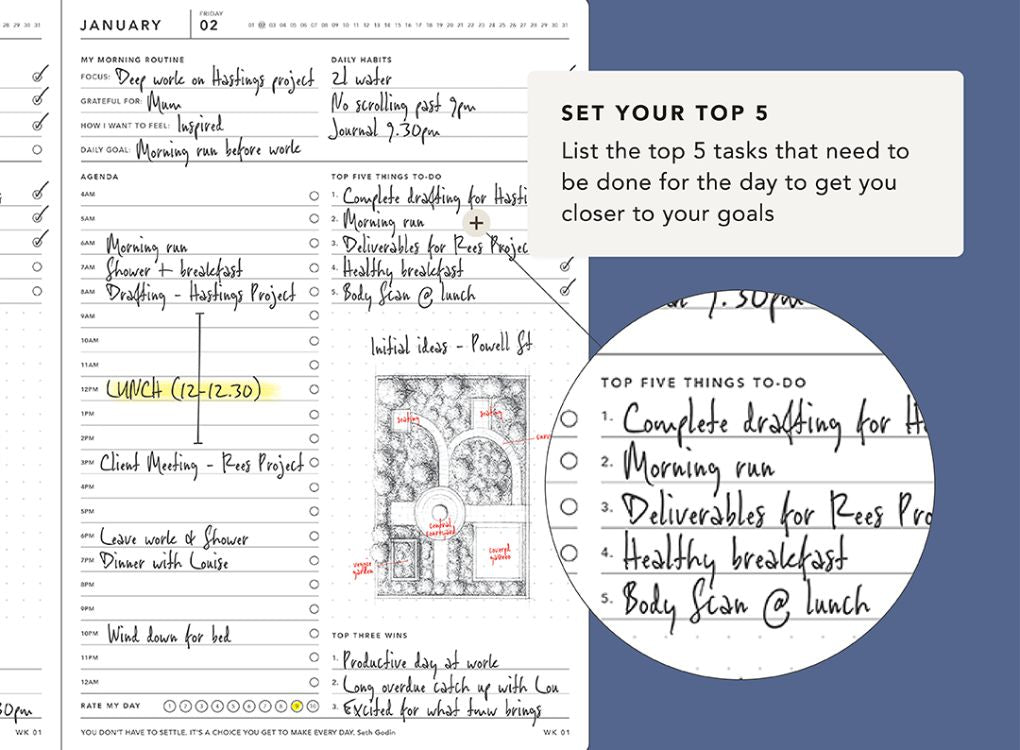 28 29 30 31
JANUARY
FRIDAY
02
01 02 03 04 05 06 07 08 09 10 11 12 13 14 15 16 17 18 19 20 21 22 23 24 25 26 27 28 29 30 31
MY MORNING ROUTINE
FOCUS: Deep work on Hastings project
GRATEFUL FOR: Mum
HOW I WANT TO FEEL: Inspired
DAILY GOAL: Morning run before work
DAILY HABITS
2l water
No scrolling past 9pm
Journal 9.30pm
AGENDA
4AM
5AM
6AM Morning run
7AM Shower + breakfast
8AM Drafting - Hastings Project
9AM
10AM
11AM
12PM LUNCH (12-12.30)
1PM
2PM
3PM Client Meeting - Rees Project
4PM
5PM
6PM Leave work & Shower
7PM Dinner with Louise
8PM
9PM
10PM Wind down for bed
11PM
12AM
RATE MY DAY 1 2 3 4 5 6 7 8 9 10
TOP FIVE THINGS TO-DO
1. Complete drafting for Hasti
2. Morning run
3. Deliverables for Rees Projec
4. Healthy breakfast
5. Body Scan @ lunch
Initial ideas - Powell St
seating
seating
central
courtyard
veggie
garden
covered
TOP THREE WINS
1. Productive day at work
2. Long overdue catch up with Lou
3. Excited for what tmw brings
30pm
WK 01
YOU DON'T HAVE TO SETTLE. IT'S A CHOICE YOU GET TO MAKE EVERY DAY. Seth Godin
WK 01
SET YOUR TOP 5
List the top 5 tasks that need to
be done for the day to get you
closer to your goals
+
9.30pm
TOP FIVE THINGS TO-DO
1. Complete drafting for H
2. Morning run
3. Deliverables for Rees Pro
4. Healthy breakfast
5. Body Scan @ lunch